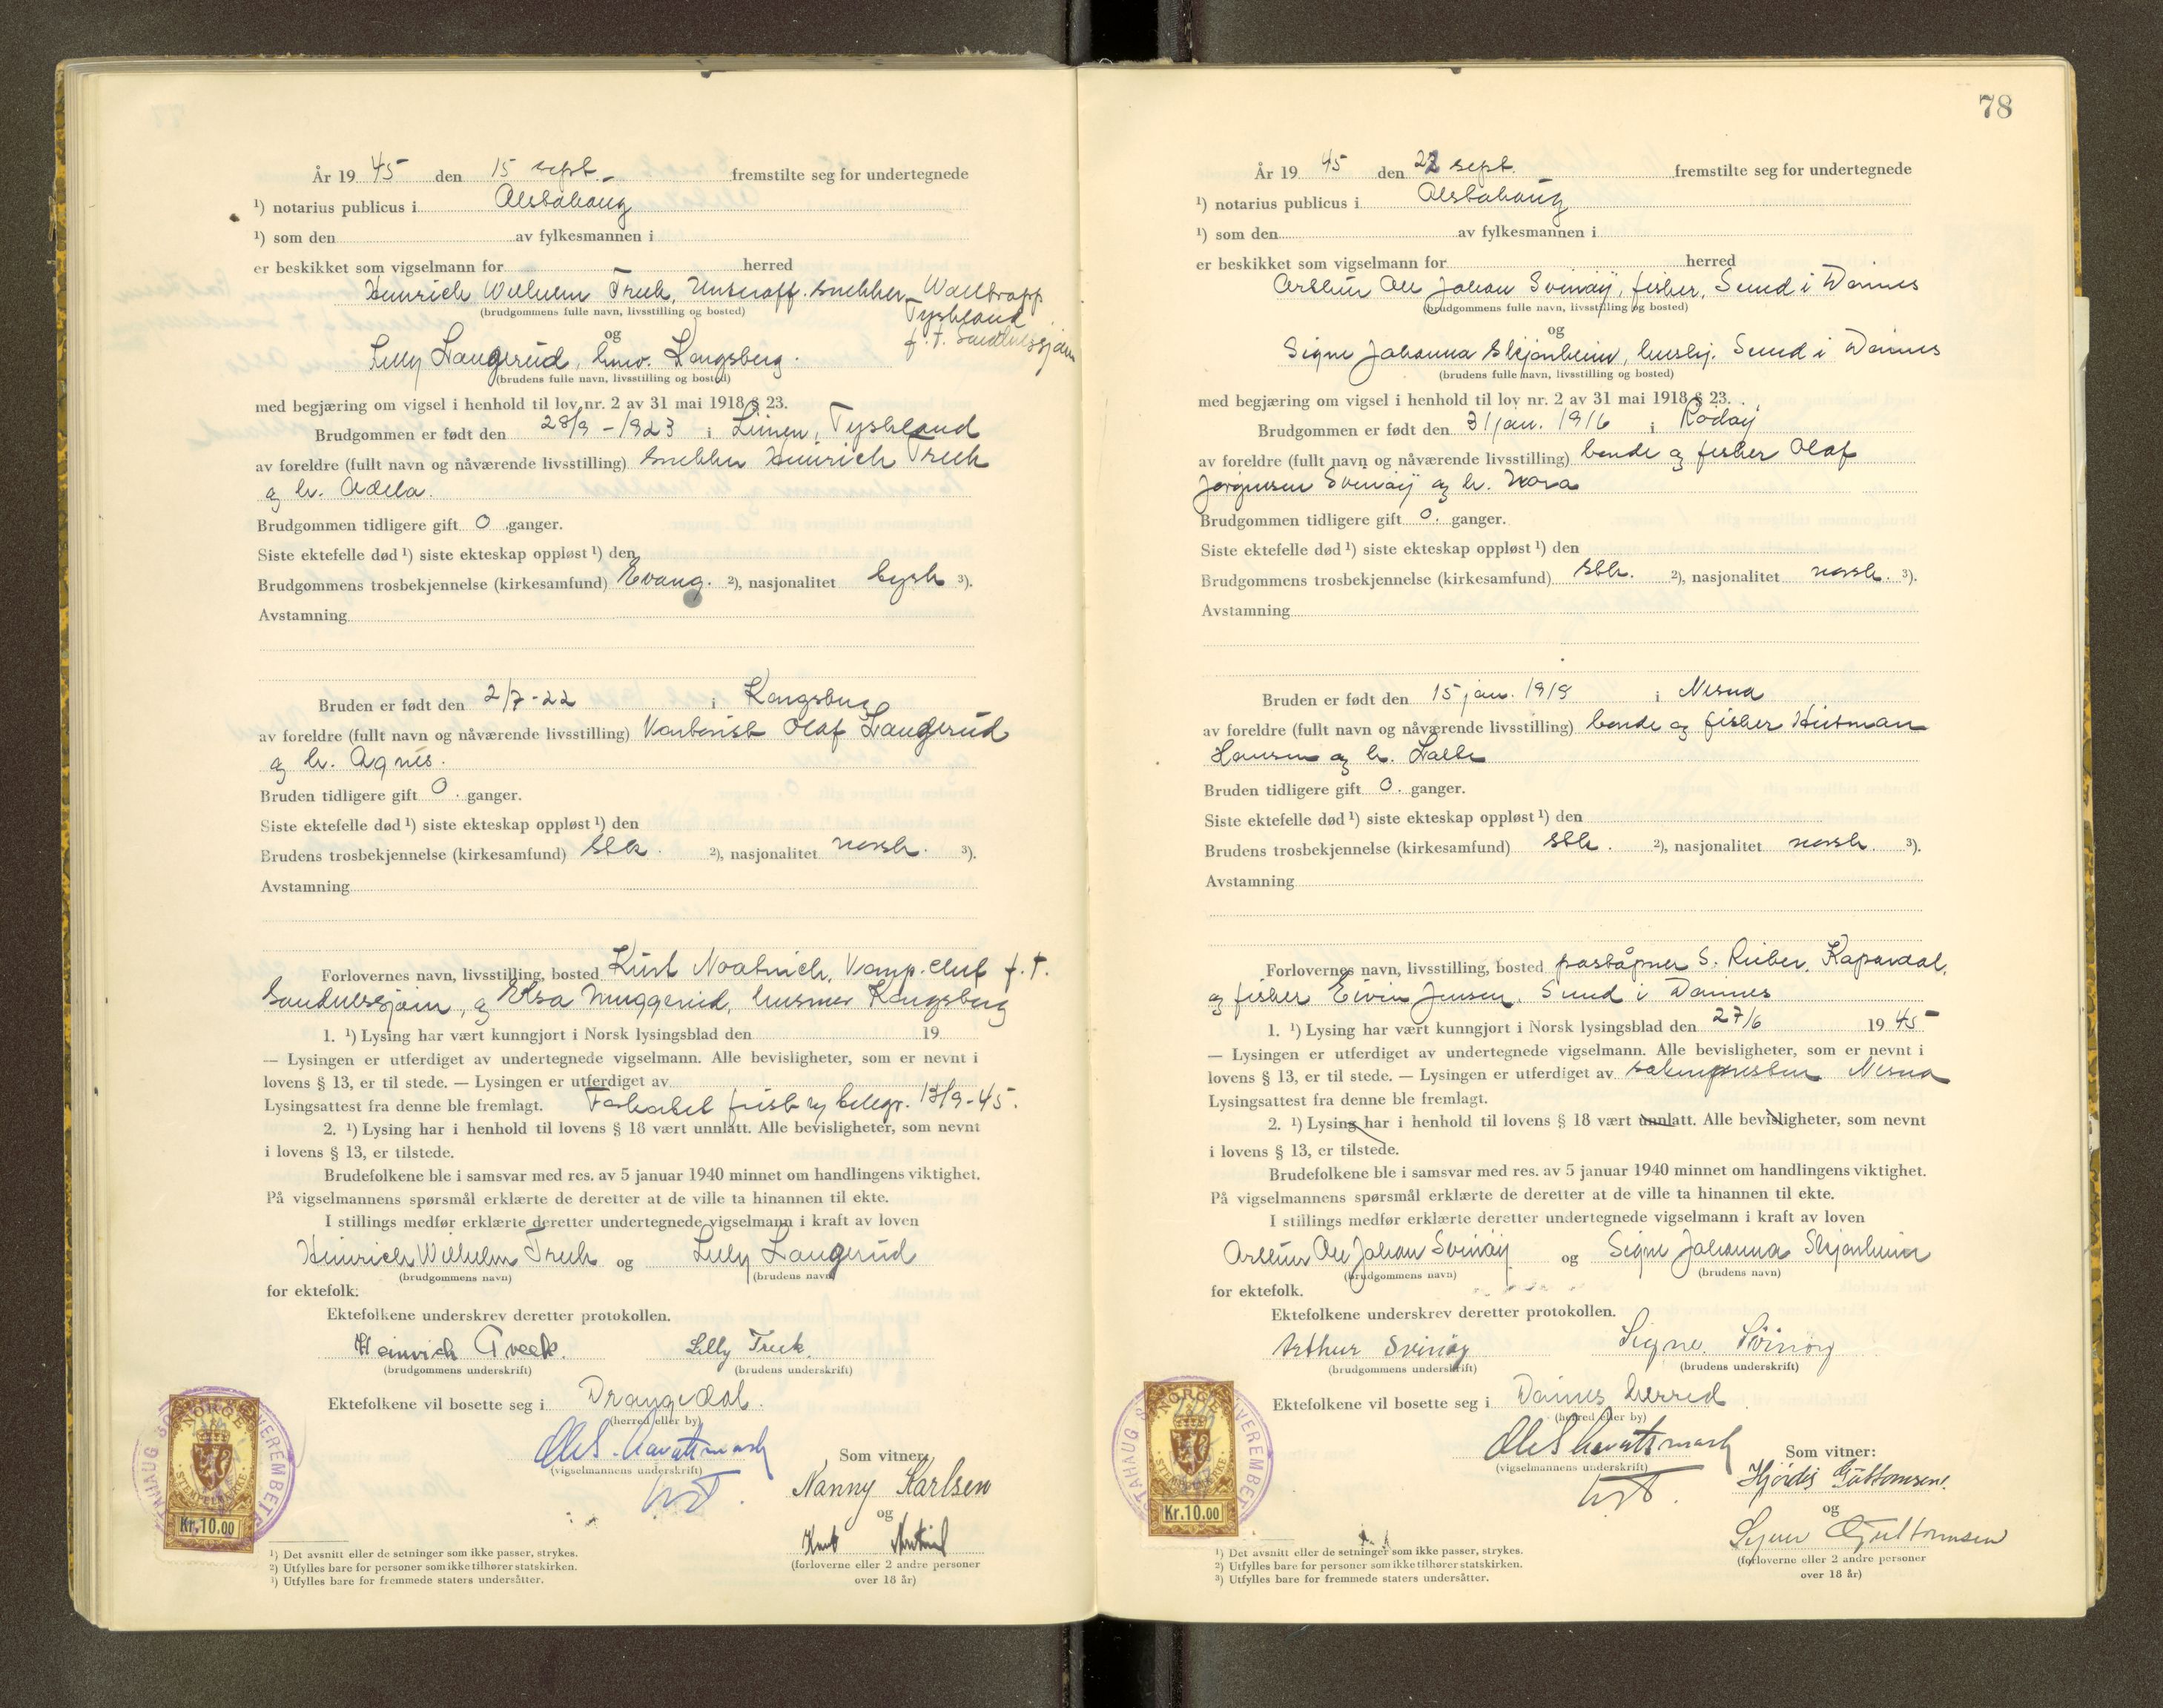 År 19 45 den 15 sept. fremstilte seg for undertegnede
¹) notarius publicus i Alstahaug
¹) som den av fylkesmannen i
er beskikket som vigselmann for herred
Heinrich Wilhelm Treek, Unteroff. snekker, Waltropp
Tyskland
(brudgommens fulle navn, livsstilling og bosted)
f. t. Sandnessjøen
og
Lilly Langerud, husv. Kongsberg.
(brudens fulle navn, livsstilling og bosted)
med begjæring om vigsel i henhold til lov nr. 2 av 31 mai 1918 § 23.
Brudgommen er født den 28/9 - 1923 i Lünen, Tyskland
av foreldre (fullt navn og nåværende livsstilling) snekker Heinrich Treek
og h. Adela.
Brudgommen tidligere gift 0 ganger.
Siste ektefelle død ¹) siste ekteskap oppløst ¹) den
Brudgommens trosbekjennelse (kirkesamfund) Evang. ²), nasjonalitet tysk ³).
Avstamning
Bruden er født den 2/7-22 i Kongsberg
av foreldre (fullt navn og nåværende livsstilling) Kontorist Olaf Langerud
og h. Agnes.
Bruden tidligere gift 0. ganger.
Siste ektefelle død ¹) siste ekteskap oppløst ¹) den
Brudens trosbekjennelse (kirkesamfund) stk. ²), nasjonalitet norsk. ³).
Avstamning
Forlovernes navn, livsstilling, bosted Kurt f. t.
Sandnessjøen, og Elsa Muggerud, husmor Kongsberg
1. ¹) Lysing har vært kunngjort i Norsk lysingsblad den 19
— Lysingen er utferdiget av undertegnede vigselmann. Alle bevisligheter, som er nevnt i
lovens § 13, er til stede. — Lysingen er utferdiget av
Lysingsattest fra denne ble fremlagt. Forkortet frist telegr. 13/9-45.
2. ¹) Lysing har i henhold til lovens § 18 vært unnlatt. Alle bevisligheter, som nevnt
i lovens § 13, er tilstede.
Brudefolkene ble i samsvar med res. av 5 januar 1940 minnet om handlingens viktighet.
På vigselmannens spørsmål erklærte de deretter at de ville ta hinannen til ekte.
I stillings medfør erklærte deretter undertegnede vigselmann i kraft av loven
Heinrich Wilhelm Treek og Lilly Langerud
(brudgommens navn) (brudens navn)
for ektefolk.
Ektefolkene underskrev deretter protokollen.
Heinrich Treek. Lilly Treek.
(brudgommens underskrift) (brudens underskrift)
Ektefolkene vil bosette seg i Drangedal.
(herred eller by)
(vigselmannens underskrift)
Som vitner:
Nanny Karlsen
og
(forloverne eller 2 andre personer
over 18 år)
NORGE
STEMPELMERKE
Kr.10.00
¹) Det avsnitt eller de setninger som ikke passer, strykes.
²) Utfylles bare for personer som ikke tilhører statskirken.
³) Utfylles bare for fremmede staters undersåtter.
78
År 19 45 den 22 sept. fremstilte seg for undertegnede
¹) notarius publicus i Alstahaug
¹) som den av fylkesmannen i
er beskikket som vigselmann for herred
Arthur Ole Johan Svinøy, fisker, Sund i Dønnes
(brudgommens fulle navn, livsstilling og bosted)
og
Signe Johanna Skjanheim, hushj. Sund i Dønnes
(brudens fulle navn, livsstilling og bosted)
med begjæring om vigsel i henhold til lov nr. 2 av 31 mai 1918 § 23.
Brudgommen er født den 31 jan. 1916 i Rødøy
av foreldre (fullt navn og nåværende livsstilling) bonde og fisker Olaf
Jørgensen Svinøy og h. Nora
Brudgommen tidligere gift 0. ganger.
Siste ektefelle død ¹) siste ekteskap oppløst ¹) den
Brudgommens trosbekjennelse (kirkesamfund) stk. ²), nasjonalitet norsk. ³).
Avstamning
Bruden er født den 15 jan. 1919 i Nesna
av foreldre (fullt navn og nåværende livsstilling) bonde og fisker Hitman
Hansen og h. Lalla
Bruden tidligere gift 0. ganger.
Siste ektefelle død ¹) siste ekteskap oppløst ¹) den
Brudens trosbekjennelse (kirkesamfund) stk. ²), nasjonalitet norsk. ³).
Avstamning
Forlovernes navn, livsstilling, bosted poståpner S. Kopardal,
og fisker Eivin Jensen, Sund i Dønnes
1. ¹) Lysing har vært kunngjort i Norsk lysingsblad den 27/6 19 45
— Lysingen er utferdiget av undertegnede vigselmann. Alle bevisligheter, som er nevnt i
lovens § 13, er til stede. — Lysingen er utferdiget av sokneprestem Nesna
Lysingsattest fra denne ble fremlagt.
2. ¹) Lysing har i henhold til lovens § 18 vært unnlatt. Alle bevisligheter, som nevnt
i lovens § 13, er tilstede.
Brudefolkene ble i samsvar med res. av 5 januar 1940 minnet om handlingens viktighet.
På vigselmannens spørsmål erklærte de deretter at de ville ta hinannen til ekte.
I stillings medfør erklærte deretter undertegnede vigselmann i kraft av loven
Arthur Ole Johan Svinøy og Signe Johanna Skjanheim
(brudgommens navn) (brudens navn)
for ektefolk.
Ektefolkene underskrev deretter protokollen.
Arthur Svinøy Signe Svinøy
(brudgommens underskrift) (brudens underskrift)
Ektefolkene vil bosette seg i Dønnes herred
(herred eller by)
(vigselmannens underskrift)
Som vitner:
Hjørdis Guttormsen.
og
Guttormsen
(forloverne eller 2 andre personer
over 18 år)
NORGE
STEMPELMERKE
Kr.10.00
¹) Det avsnitt eller de setninger som ikke passer, strykes.
²) Utfylles bare for personer som ikke tilhører statskirken.
³) Utfylles bare for fremmede staters undersåtter.